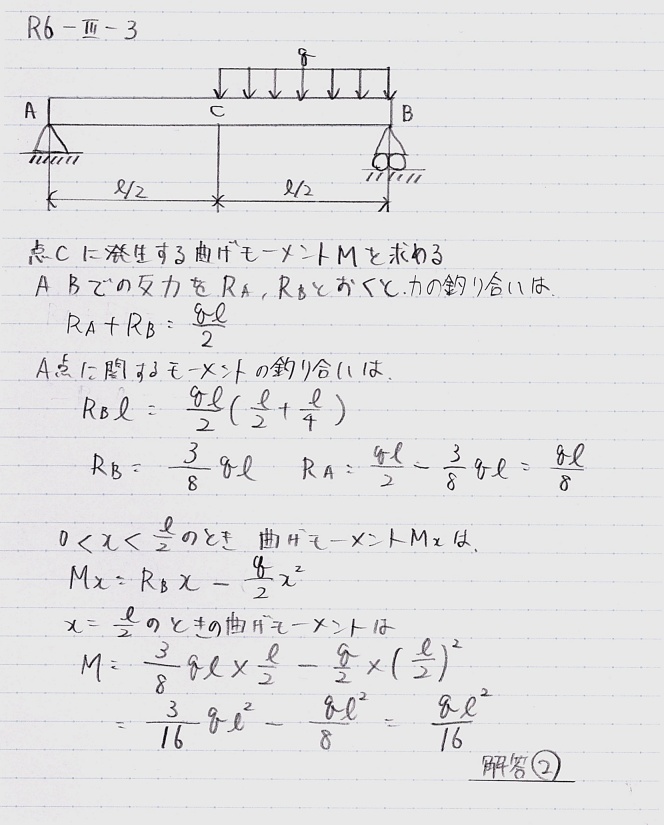 R6-Ⅲ-3
q
A C B
ℓ/2 ℓ/2
点Cに発生する曲げモーメントMを求める
A Bでの反力をRA, RBとおくと.力の釣り合いは.
RA+RB= qℓ/2
A点に関するモーメントの釣り合いは.
RBℓ = qℓ/2 (ℓ/2 + ℓ/4)
RB= 3/8 qℓ RA= qℓ/2 - 3/8 qℓ = qℓ/8
0<x<ℓ/2のとき 曲げモーメントMxは、
Mx= RB x - q/2 x²
x= ℓ/2のときの曲げモーメントは
M= 3/8 qℓ × ℓ/2 - q/2 × (ℓ/2)²
= 3/16 qℓ² - qℓ²/8 = qℓ²/16
解答②